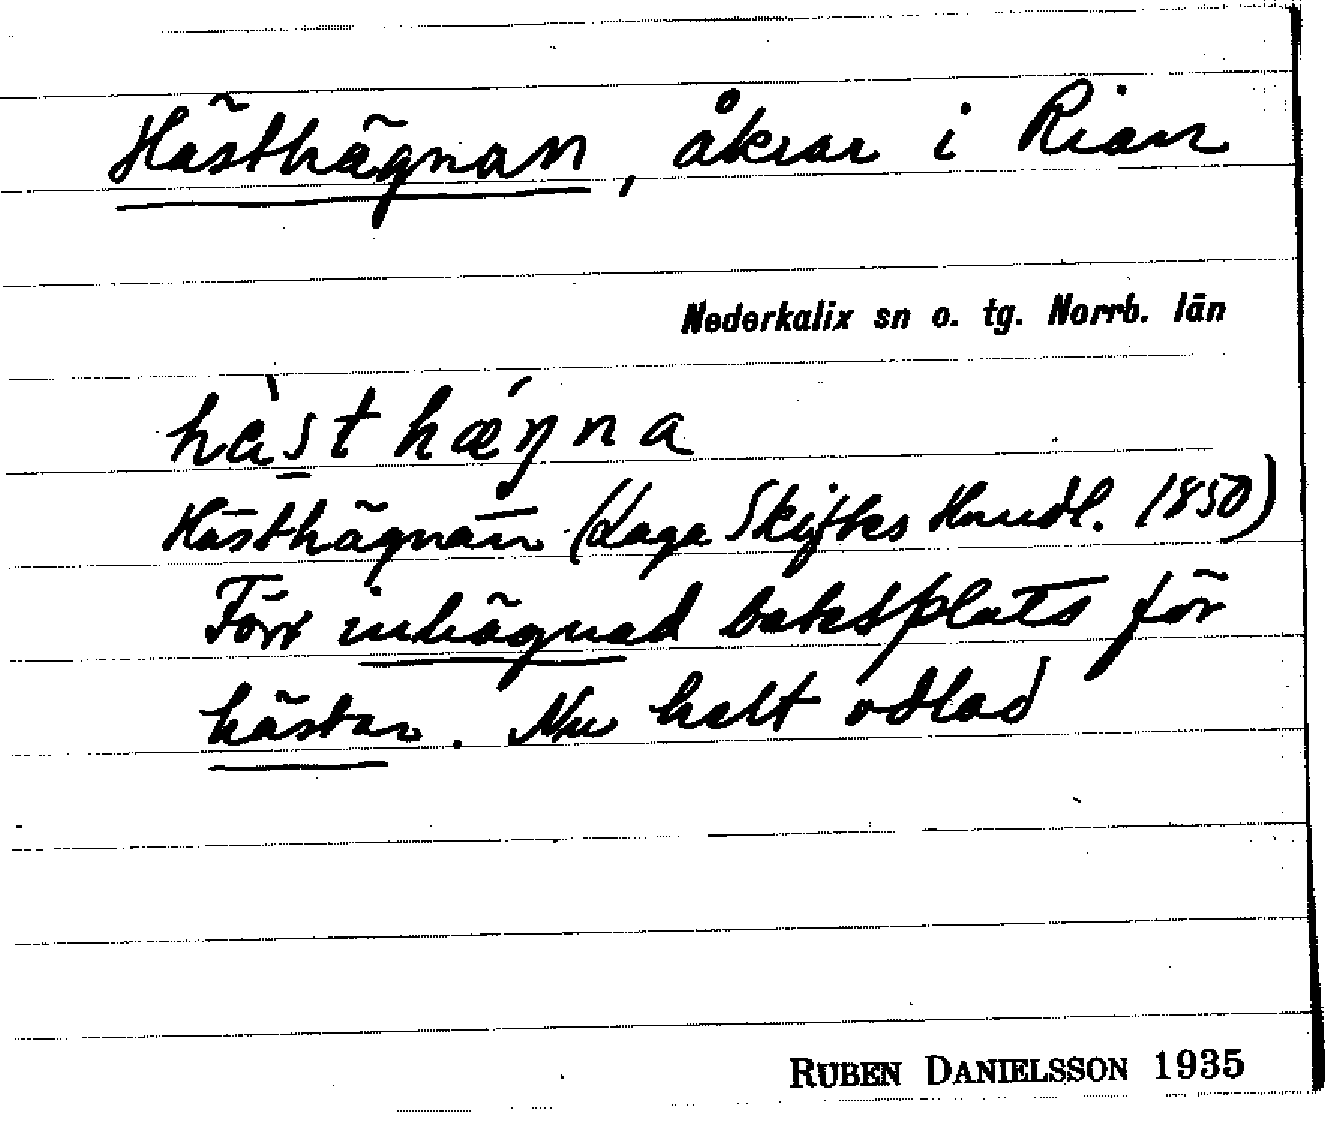 Hästhägnan, åkrar i Rian
Nederkalix sn o. tg. Norrb. län
hàst hǽŋna
Hästhägnan (Laga Skiftes Handl. 1850)
Förr inhägnad betesplats för
hästar. Nu helt odlad
RUBEN DANIELSSON 1935